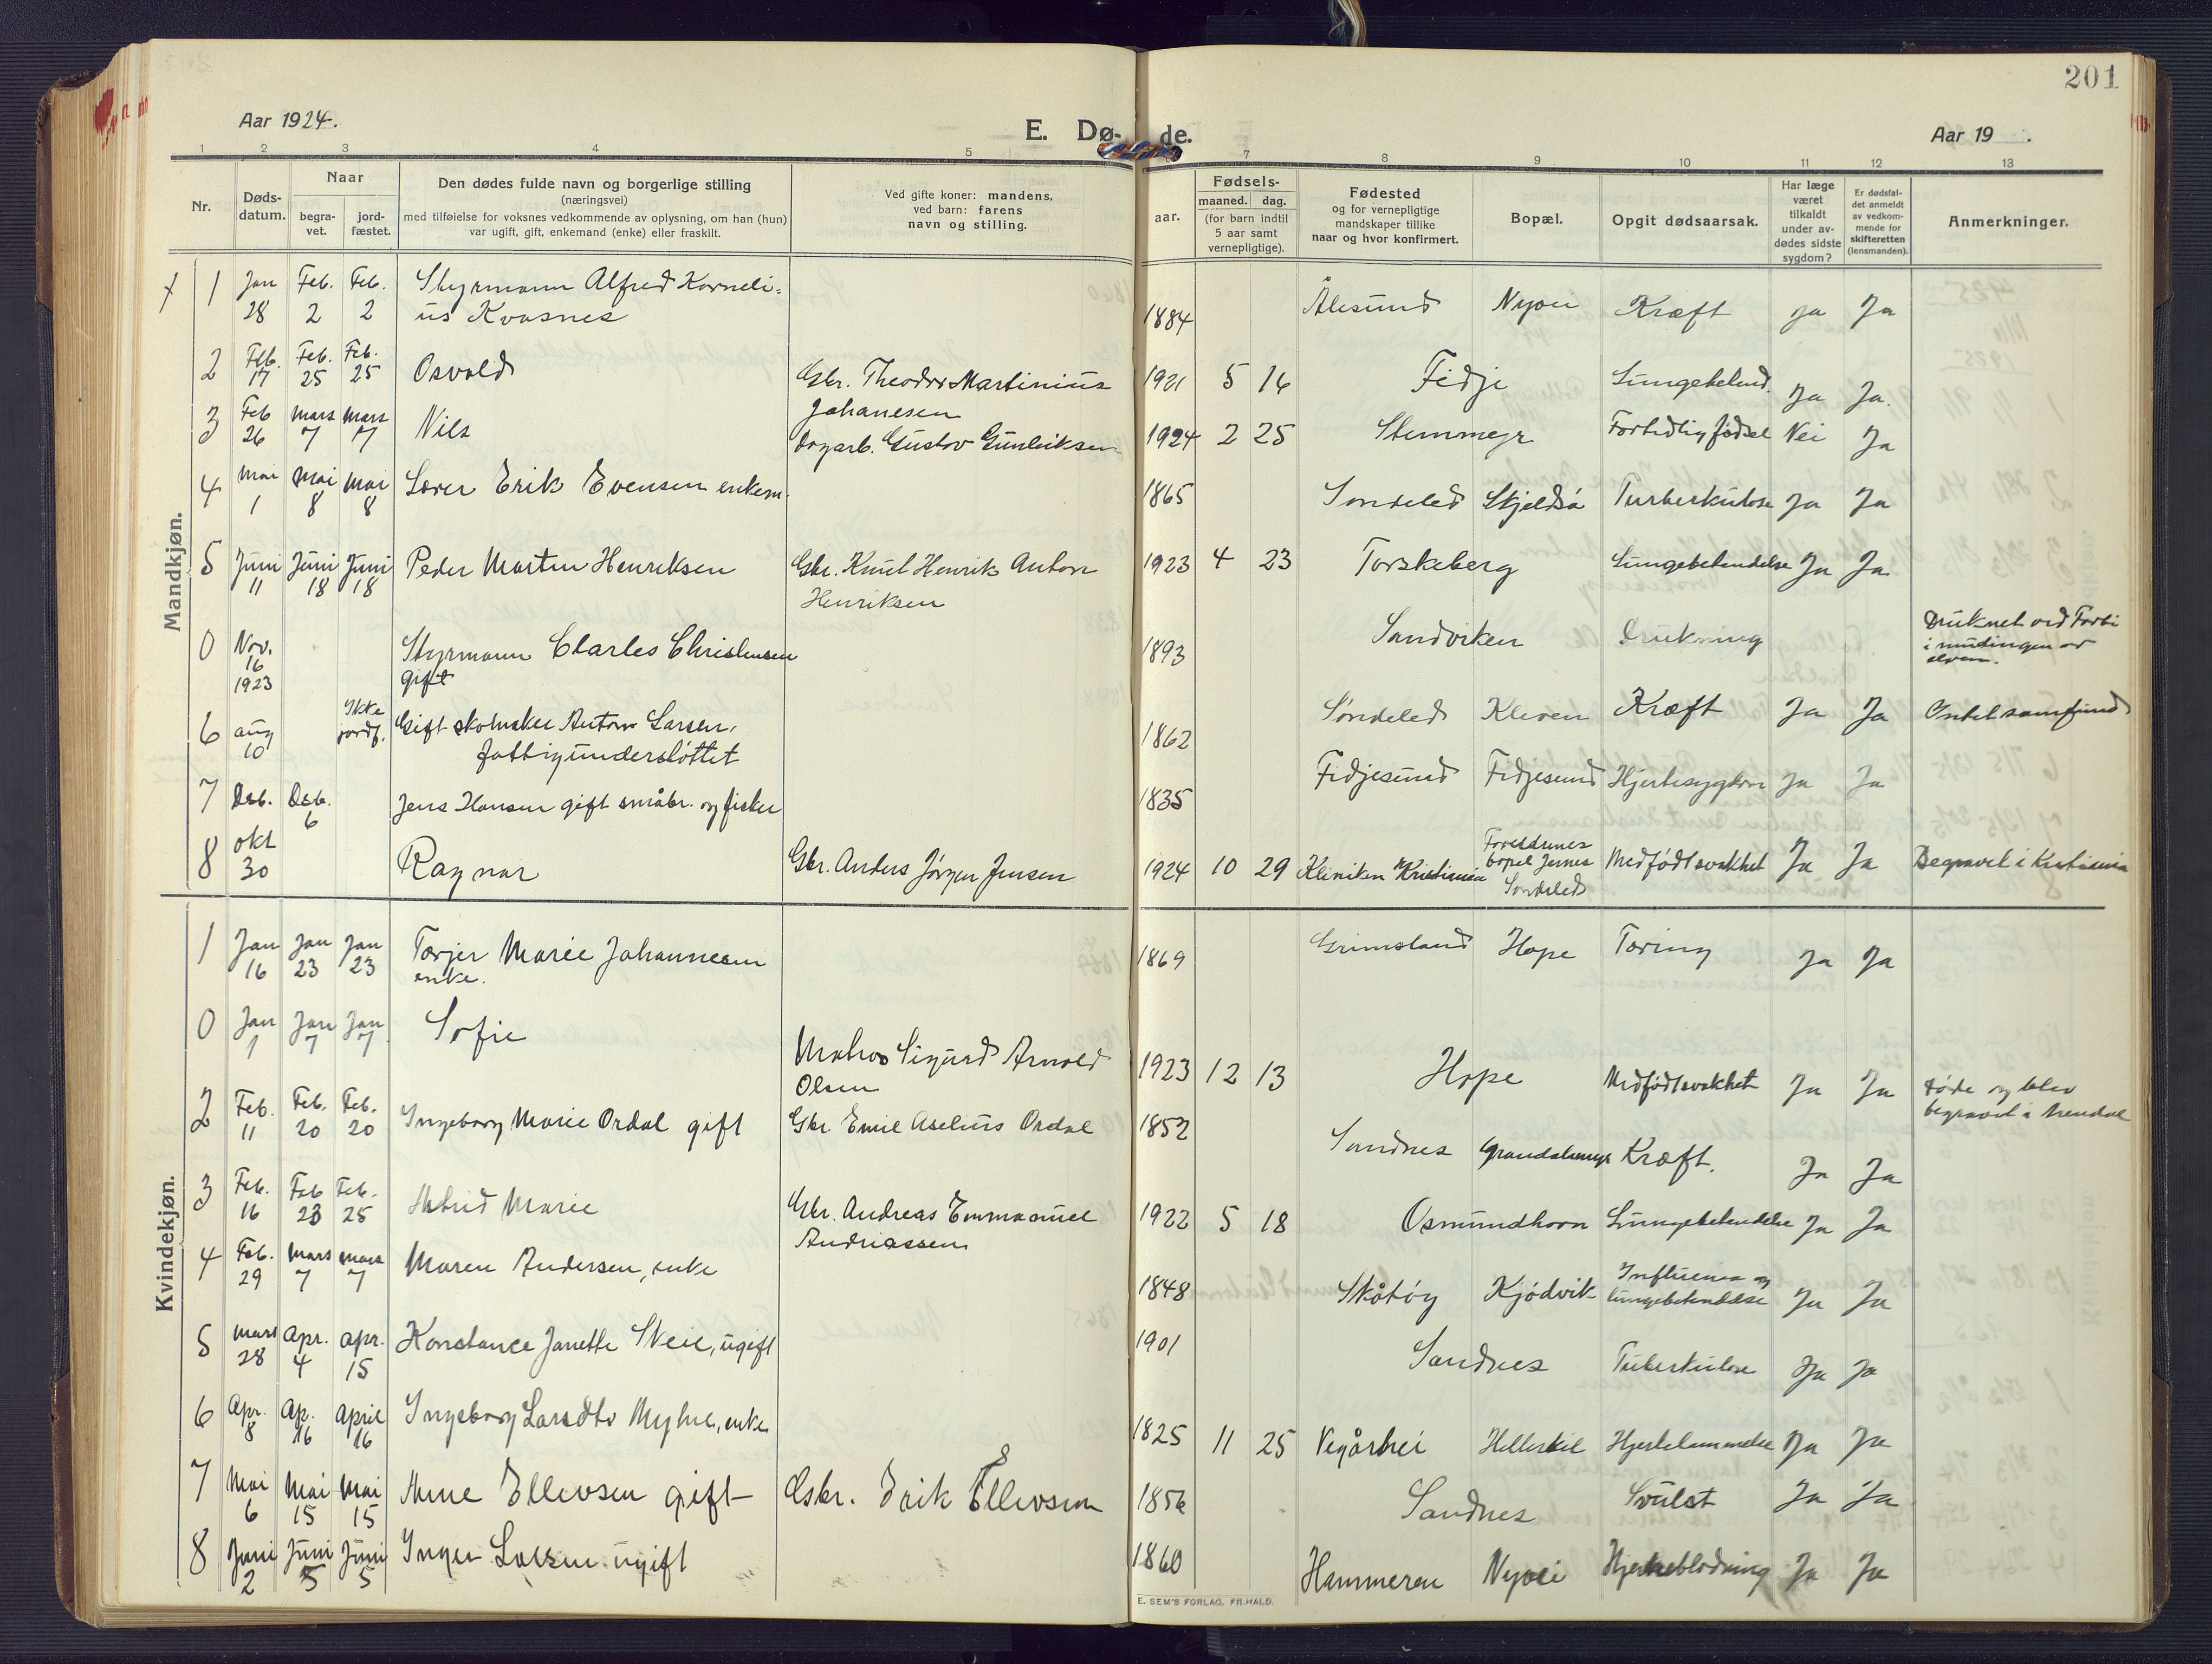 201
Aar 1924.
E. Dø- de.
Aar 19 .
1 2 3 4 5 7 8 9 10 11 12 13
Nr.
Døds-
datum.
Naar
begra-
vet.
jord-
fæstet.
Den dødes fulde navn og borgerlige stilling
(næringsvei)
med tilføielse for voksnes vedkommende av oplysning, om han (hun)
var ugift, gift, enkemand (enke) eller fraskilt.
Ved gifte koner: mandens,
ved barn: farens
navn og stilling.
Fødsels-
aar.
maaned. dag.
(for barn indtil
5 aar samt
vernepligtige).
Fødested
og for vernepligtige
mandskaper tillike
naar og hvor konfirmert.
Bopæl.
Opgit dødsaarsak.
Har læge
været
tilkaldt
under av-
dødes sidste
sygdom?
Er dødsfal-
det anmeldt
av vedkom-
mende for
skifteretten
(lensmanden).
Anmerkninger.
Mandkjøn.
1 Jan 28 Feb. 2 Feb. 2 Styrmann Alfred Korneli-
us Kvasnes 1884 Ålesund Nyvei Kræft ja Ja
2 Feb. 17 Feb. 25 Feb. 25 Osvald Gbr. Theodor Martinius
Johanesen 1921 5 16 Fidje Lungebetend. Ja Ja.
3 Feb 26 mars 7 mars 7 Nils Gustav Gunleiksen 1924 2 25 Stemmyr Fortidlig fødsel Nei Ja
4 mai 1 mai 8 mai 8 Lærer Erik Evensen enkem. 1865 Søndeled Skjeldsø Turberkulose Ja Ja
5 Juni 11 Juni 18 Juni 18 Peder Martin Henriksen Gbr. Knut Henrik Anton
Henriksen 1923 4 23 Torskeberg Lungebetendelse Ja Ja
0 Nov. 16 1923 Styrmann Charles Christensen
gift 1893 Sandviken Drukning Druknet ved
i mundingen av
elven.
6 aug 10 Ikke jordf. Gift skomaker Anton Larsen,
fattigunderstøttet 1862 Søndeled Kleven Kræft Ja Ja
7 Des. Des. 6 Jens Hansen gift småbr. og fisker 1835 Fidjesund Fidjesund Hjertesygdom Ja Ja
8 okt 30 Ragnar Gbr. Anders Jørgen Jensen 1924 10 29 Kliniken Kristiania Foreldrenes
bopel
Søndeled Medfødt svakhet Ja Ja Begravet i Kristiania
Kvindekjøn.
1 Jan 16 Jan 23 Jan 23 Torjer Marie Johannesen
enke. 1869 Grimsland Hope Tæring Ja Ja
0 Jan 1 Jan 7 Jan 7 Sofie Matros Sigurd Arnold
Olsen 1923 12 13 Hope Medfødt svakhet Ja Ja Døde og blev
begravet i Arendal
2 Feb. 11 Feb. 20 Feb. 20 Ingeborg Marie Ordal gift Gbr Emil Aselius Ordal 1852 Sandnes Kræft. Ja Ja
3 Feb. 16 Feb 23 Feb. 25 Astrid Marie Gbr. Andreas Emmanuel
Andreassen 1922 5 18 Osmundhavn Lungebetendelse Ja Ja
4 Feb. 29 mars 7 mars 7 Maren Andersen, enke 1848 Skåtøy Kjødvik Influensa og
lungebetendelse Ja Ja
5 mars 28 Apr. 4 apr. 15 Konstance Janette Skeie, ugift 1901 Sandnes Tuberkulose Ja Ja
6 Apr. 8 Ap. 16 April 16 Ingeborg Larsdtr Myhre, enke 1825 11 25 Vegårshei Helleskil Hjertelammelse Ja Ja
7 Mai 6 Mai 15 Mai 15 Anne Ellevsen gift Gbr. Erik Ellevsen 1856 Sandnes Svulst Ja Ja
8 Juni 2 Juni 5 Juni 5 Inger Larsen ugift 1860 Hammeren Nyvei Hjerneblødning Ja Ja
E. SEM'S FORLAG, FR.HALD.